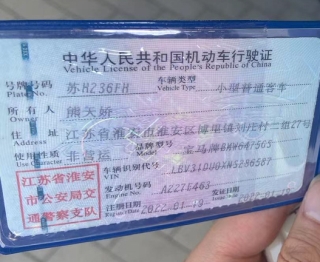 中华人民共和国机动车行驶证
Vehicle License of the People's Republic of China
号牌号码 苏H236FH 车辆类型 小型普通客车
Plate No. Vehicle Type
所有人 熊天娇
Owner
住址 江苏省淮安市淮安区博里镇刘庄村二组27号
Address
使用性质 非营运 品牌型号 宝马牌BMW6475G5
Use Character
车辆识别代号 LBV31DU0XNS286587
VIN
发动机号码 A227E463
Engine No.
注册日期 2022-01-19 发证日期 2022-01-19
Register Date Issue Date
江苏省淮安
市公安局交
通警察支队